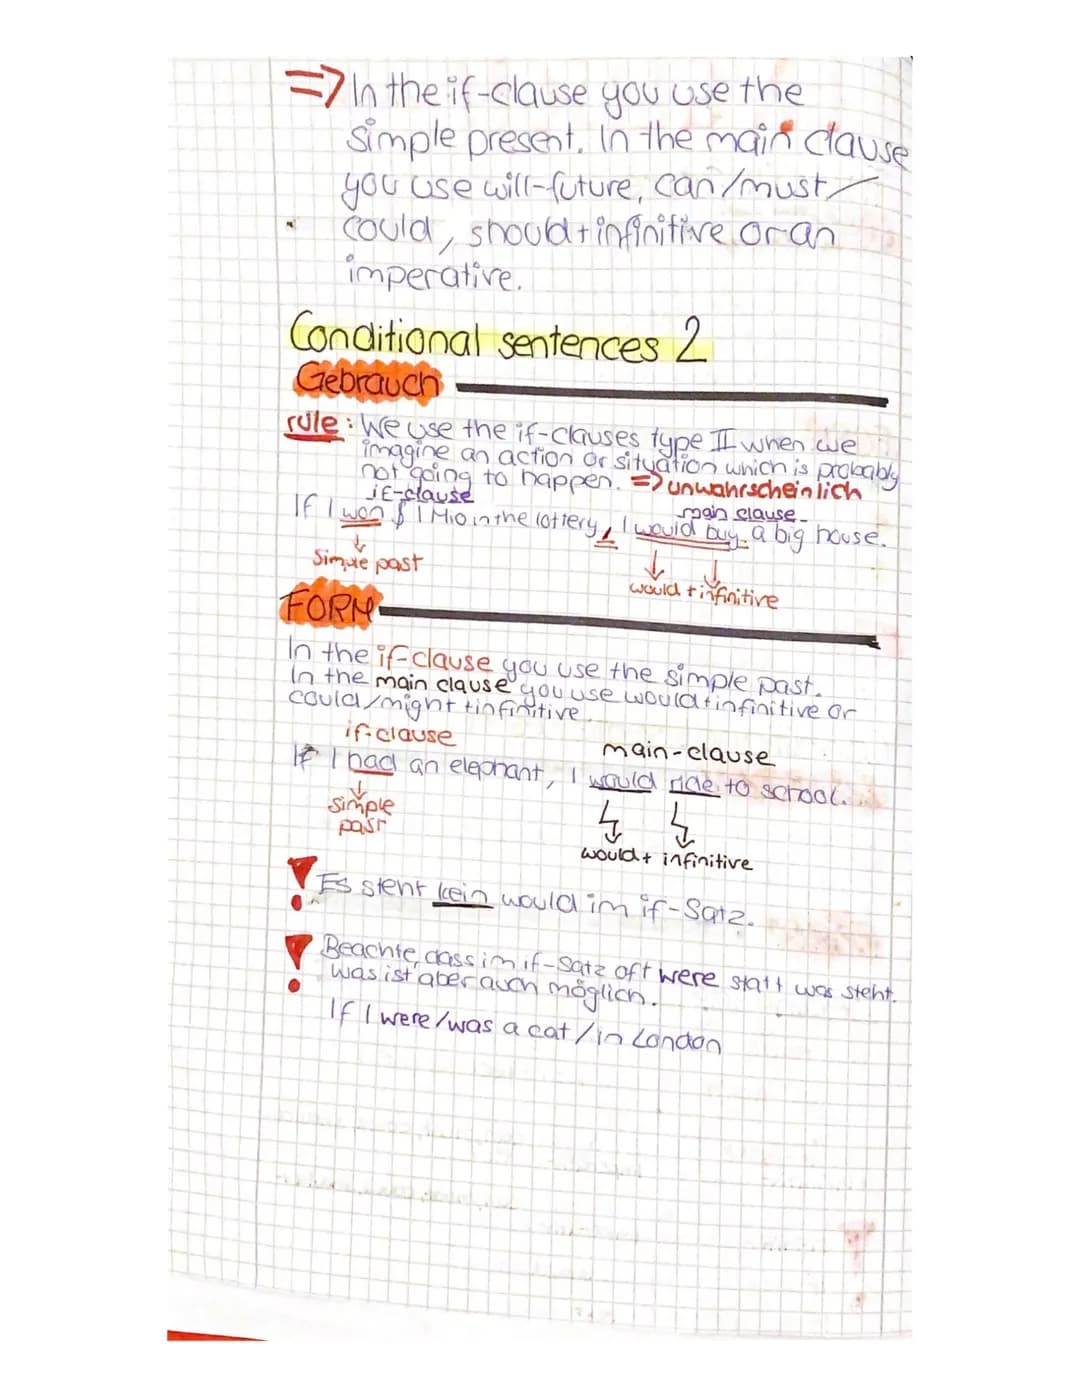 => In the if-clause you use the
simple present. In the main clause
you use will-future, can/must/
could, should+infinitive or an
imperative.
Conditional sentences 2
Gebrauch
rule: We use the if-clauses type II when we
imagine an action or situation which is probably
not going to happen. => unwahrscheinlich
if-clause main clause
If I won $ 1 Mio in the lottery, I would buy a big house.
simple past
would + infinitive
FORM
In the if-clause you use the simple past.
In the main clause you use would+infinitive or
could/might+infinitive.
if-clause main-clause
If I had an elephant, I would ride to school.
simple
past
would + infinitive
! Es steht kein would im if-Satz.
! Beachte, dass im if-Satz oft were statt was steht.
was ist aber auch möglich.
If I were/was a cat/in London